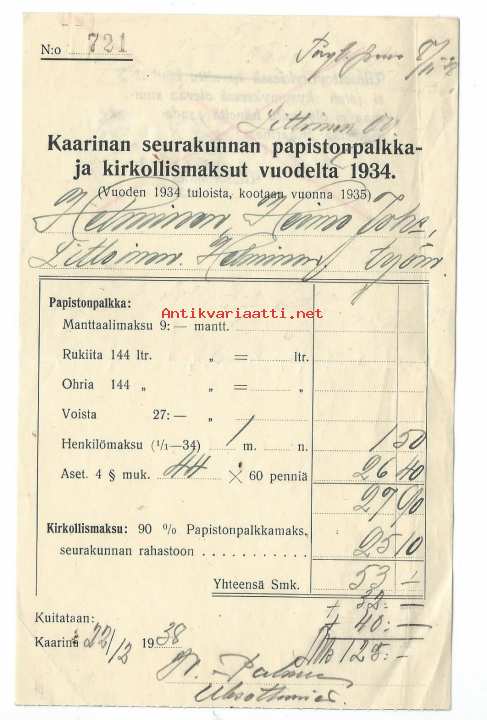 N:o 721
Littoinen
Kaarinan seurakunnan papistonpalkka-
ja kirkollismaksut vuodelta 1934.
(Vuoden 1934 tuloista, kootaan vuonna 1935)
Helminen, Heino Joh.,
Littoinen. Helminen, työm.
Papistonpalkka:
Antikvariaatti.net
Manttaalimaksu 9: — mantt.
Rukiita 144 ltr. „ = ltr.
Ohria 144 „ „ = „
Voista 27: — „
Henkilömaksu (1/1—34) 1 m. n. 1 50
Aset. 4 § muk. 44 × 60 penniä 26 40
27 90
Kirkollismaksu: 90 % Papistonpalkkamaks.
seurakunnan rahastoon . . . . . . . . . . 25 10
Yhteensä Smk. 53 —
+ 32: —
Kuitataan: + 40: —
Kaarina 22/2 1938 Mk 125: —
Ulosottomies.